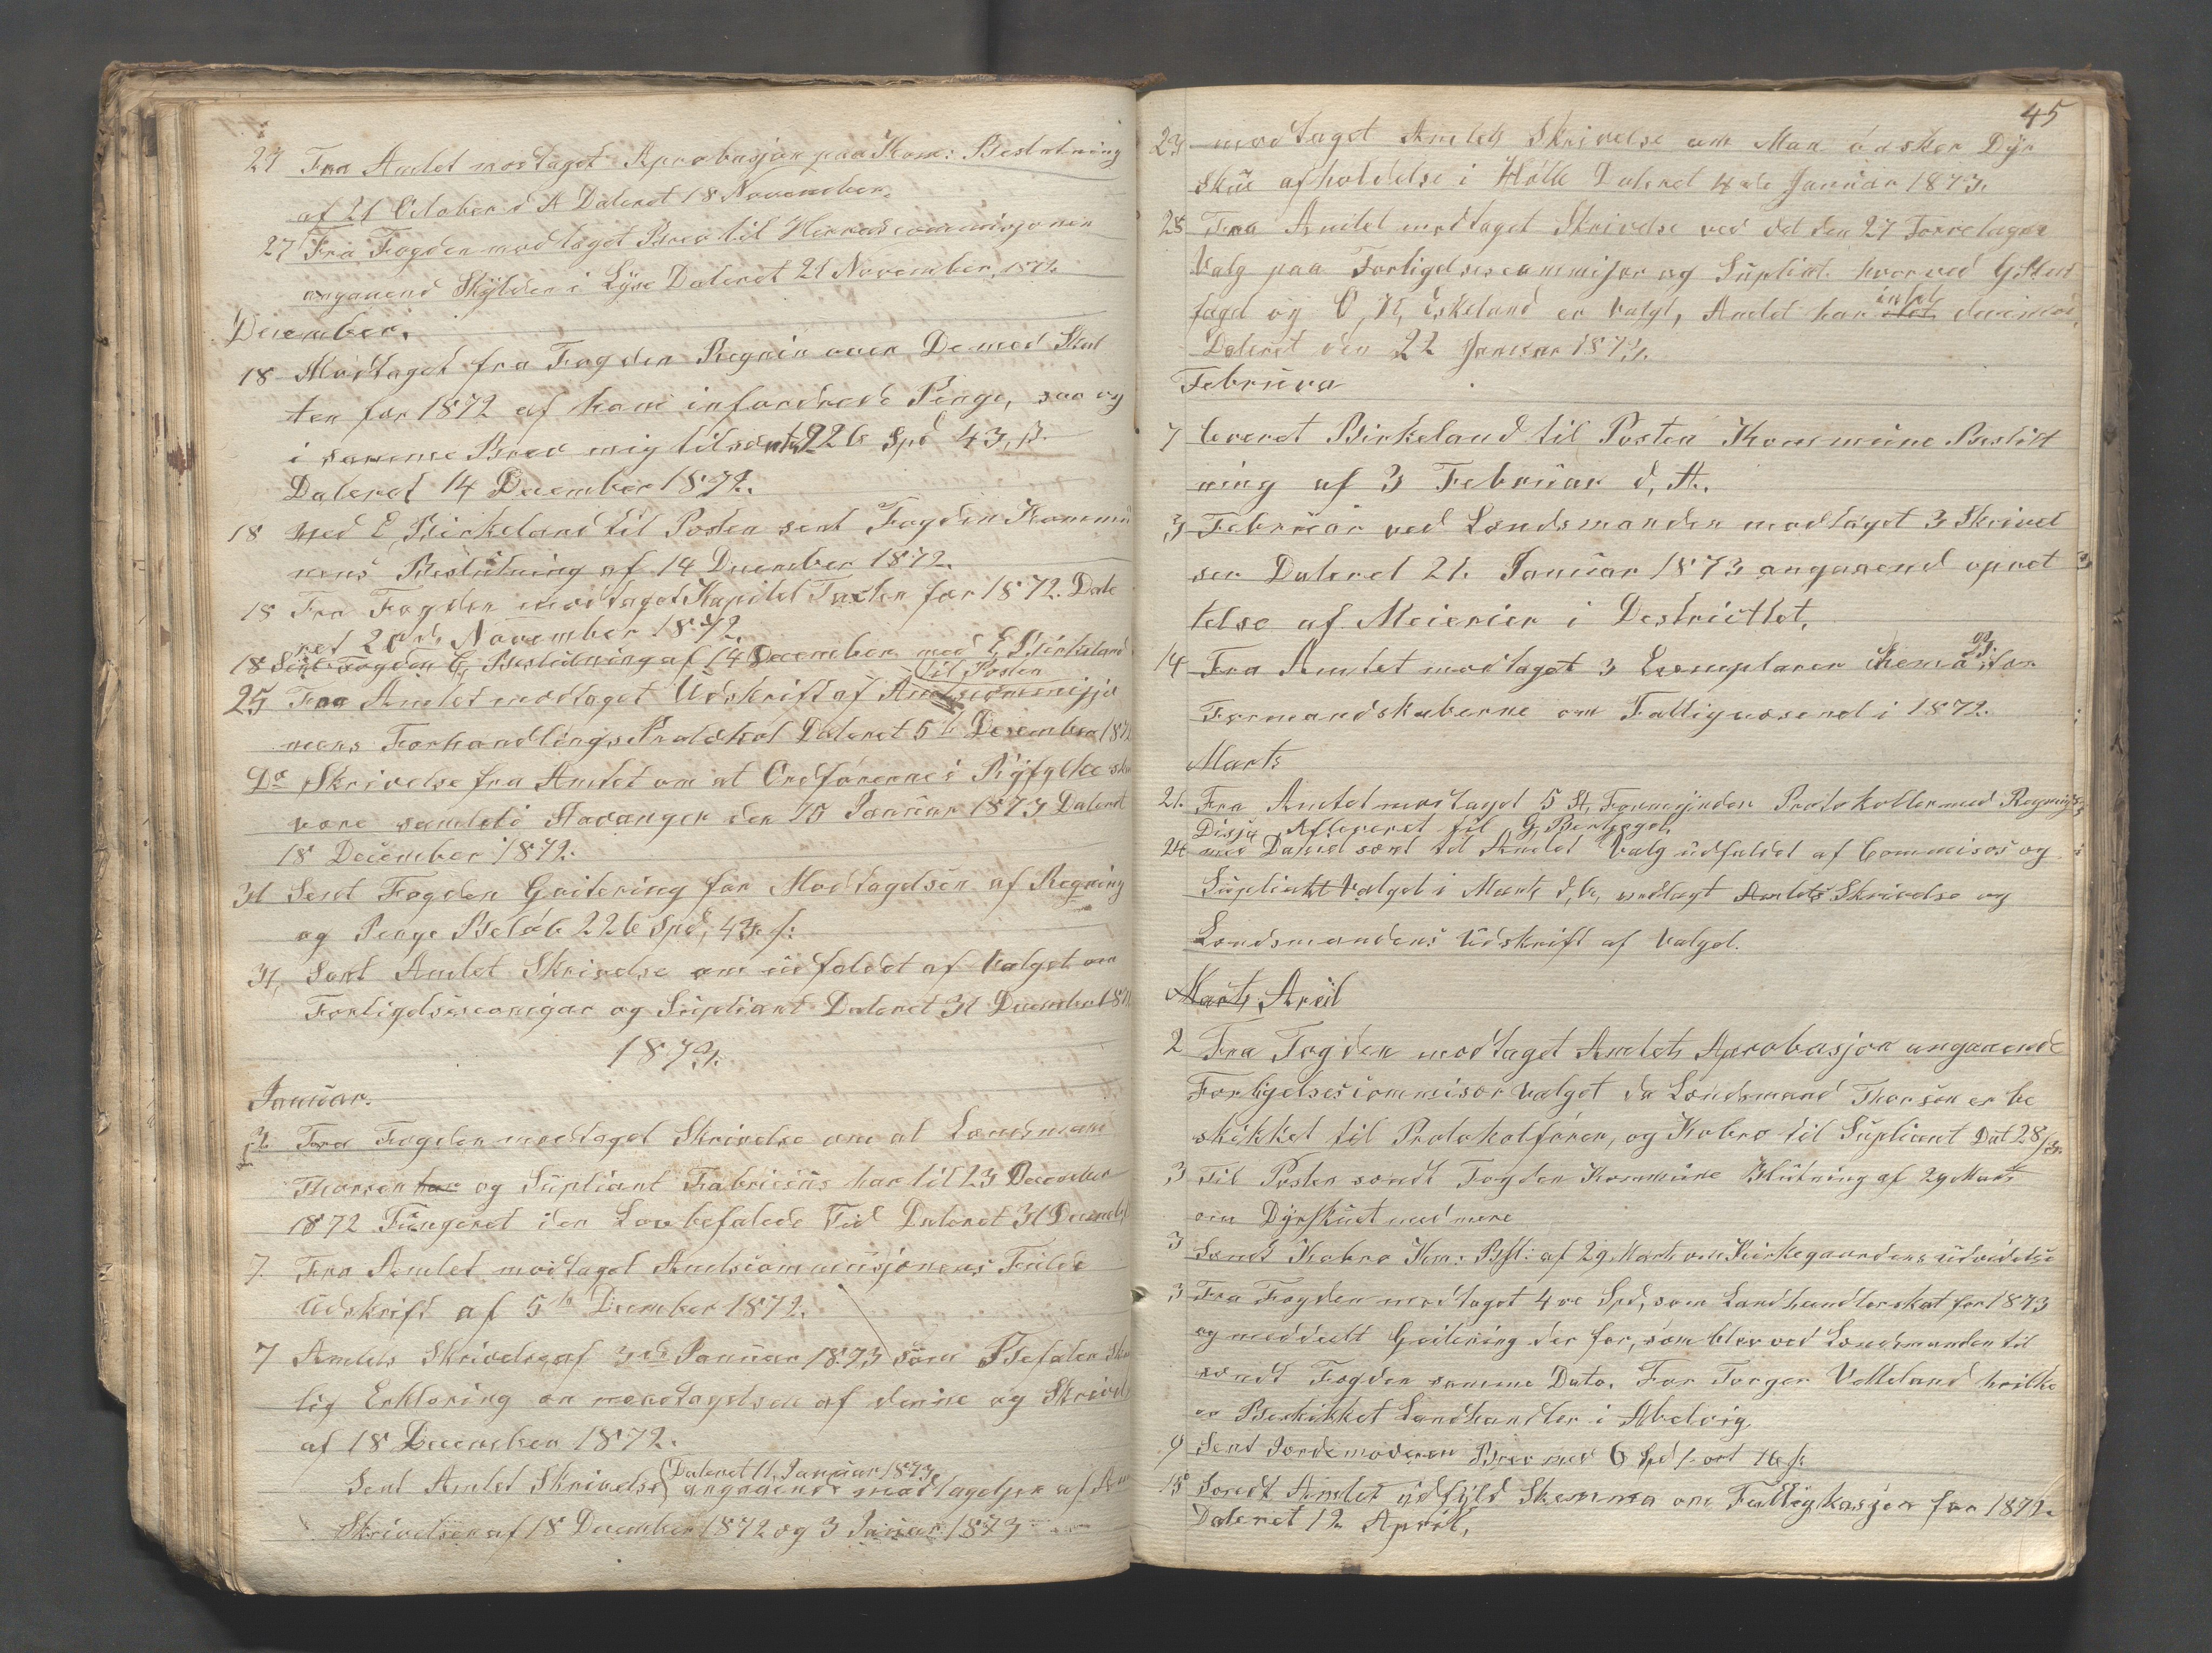 27 Fra Amtet modtaget Aprobasjon paa Kom: Beslutning
af 21 October d A Dateret 18 November.
27 Fra Fogden modtaget Brev til Herredscommisjonen
angaaend Skylden i Lyse Dateret 21 November 1872
December.
18 Modtaget fra Fogden Regnin over De med Skat
ten for 1872 af ham infordrede Penge, saa og
i samme Brev mig tilsent 226 Spd 43 β.
Dateret 14 December 1872.
18 Med E, Birkeland til Posten sent Fogden Kommu
nens Beslutning af 14 December 1872.
18 Fra Fogden modtaget Kapitel Taxten for 1872. Date
ret 20de November 1872.
18 Sent Fogden C, Beslutning af 14 December med E, Birkeland
til Posten
25 Fra Amtet modtaget Udskrift af Amtscommisjo
nens Forhandlings Protokol Dateret 5te Desember 1872
Do Skrivelse fra Amtet om at Ordførerne i Ryfylke skal
være samlet i Stavanger den 10 Januar 1873 Dateret
18 December 1872.
31 Sent Fogden Qvitering for Modtagelsen af Regning
og Penge Beløb 226 Spd, 43 β:
31, Sent Amtet Skrivelse om udfaldet af Valget om
Forligelsescomisar og Supliant Dateret 31 December 1872
1873.
Januar.
2 Fra Fogden modtaget Skrivelse om at Lensmam
Thorsen har og Supliant Fabricius har til 23 December
1872 Fungeret i den Lovbefalede Tid Dateret 31 Decembr
7. Fra Amtet modtaget Amtscommisjonens Fulde
Udskrift af 5te December 1872.
7 Amtets Skrivelse af 3de Januar 1873 som Befaler Skri
lig Erklæring om modtagelsen af denne og Skrivels
af 18 December 1872.
Dateret 11, Januar 1873
Sent Amtet Skrivelse angaaende modtagelsen af Am
Skrivelser af 18 December 1872 og 3 Januar 1873
45
23 modtaget Amtets Skrivelse om Man ønsker Dyr
Skue afholdelse i Hølle Dateret 14de Januar 1873.
28 Fra Amtet modtaget Skrivelse ved det den 27 Foretagne
Valg paa Forligelsescommisar og Supliat hvorved G,
intet
og O, K, Eskeland er valgt, Amtet har
Dateret den 22 Januar 1873.
Februva
7 leveret Birkeland til Posten Kommune Beslut
ning af 3 Februar d, A.
3 Februar ved Lendsmanden modtaget 3 Skrivel
ser Dateret 21. Januar 1873 angaaend opret
telse af Meierier i Destricttet.
14 Fra Amtet modtaget 3 Exemplarer Skema for
Formandskaberne om Fattigvæsenet i 1872.
Marts
21. Fra Amtet modtaget 5 St, Protokoller med Regnings
Afleveret til G, Berge
24 med David sent til Amtet Valg udfaldet af Commisos og
Supliatt Valget i Marts d, A, vedlagt Amtets Skrivelse og
Lendsmandens Udskrift af Valget.
Marts, Areil
2 Fra Fogden modtaget Amtets Aprobasjon angaaende
Forligelsescommisær valget da Lendsmand Thorsen er be
skikket til Protokolfører, og Kobro til Supliant Dat 28/3
3 Til Posten sendt Fogden Kommune Blutning af 29 Marts
om Dyrskuet med mere
3 Sendt Kobro Kom: Bsl: af 29 Marts om Kirkegaardens udvidelse
3 Fra Fogden modtaget 4 Spd, som Landhandlerskat for 1873
og meddeelt Qvitering der for, som blev ved Lensmanden til
sendt Fogden samme Dato. For Torger Velleland hvilke
er Beskikket Landhandler i Abelvig
9 Sent Jordemoderen Brev med 6 Spd 1 ort 16 β.
15 Sendt Amtet udfyld Skemma om Fattigkasjen for 1872.
Dateret 12 April,